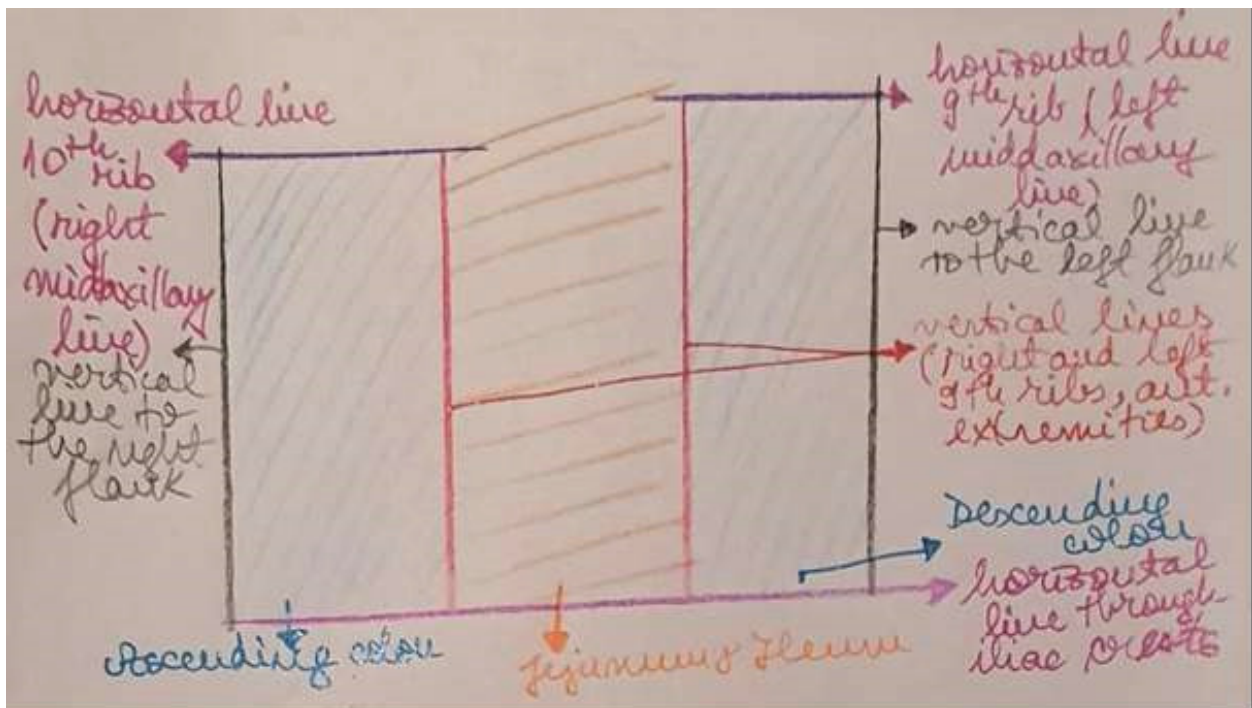 horizontal line
10th rib
(right
midaxillary
line)
vertical
line to
the right
flank
horizontal line
9th rib (left
middaxillary
line)
vertical line
to the left flank
vertical lines
(right and left
9th ribs, ant.
extremities)
Descending
colon
horizontal
line through
iliac crests
Ascending colon
Jejunum